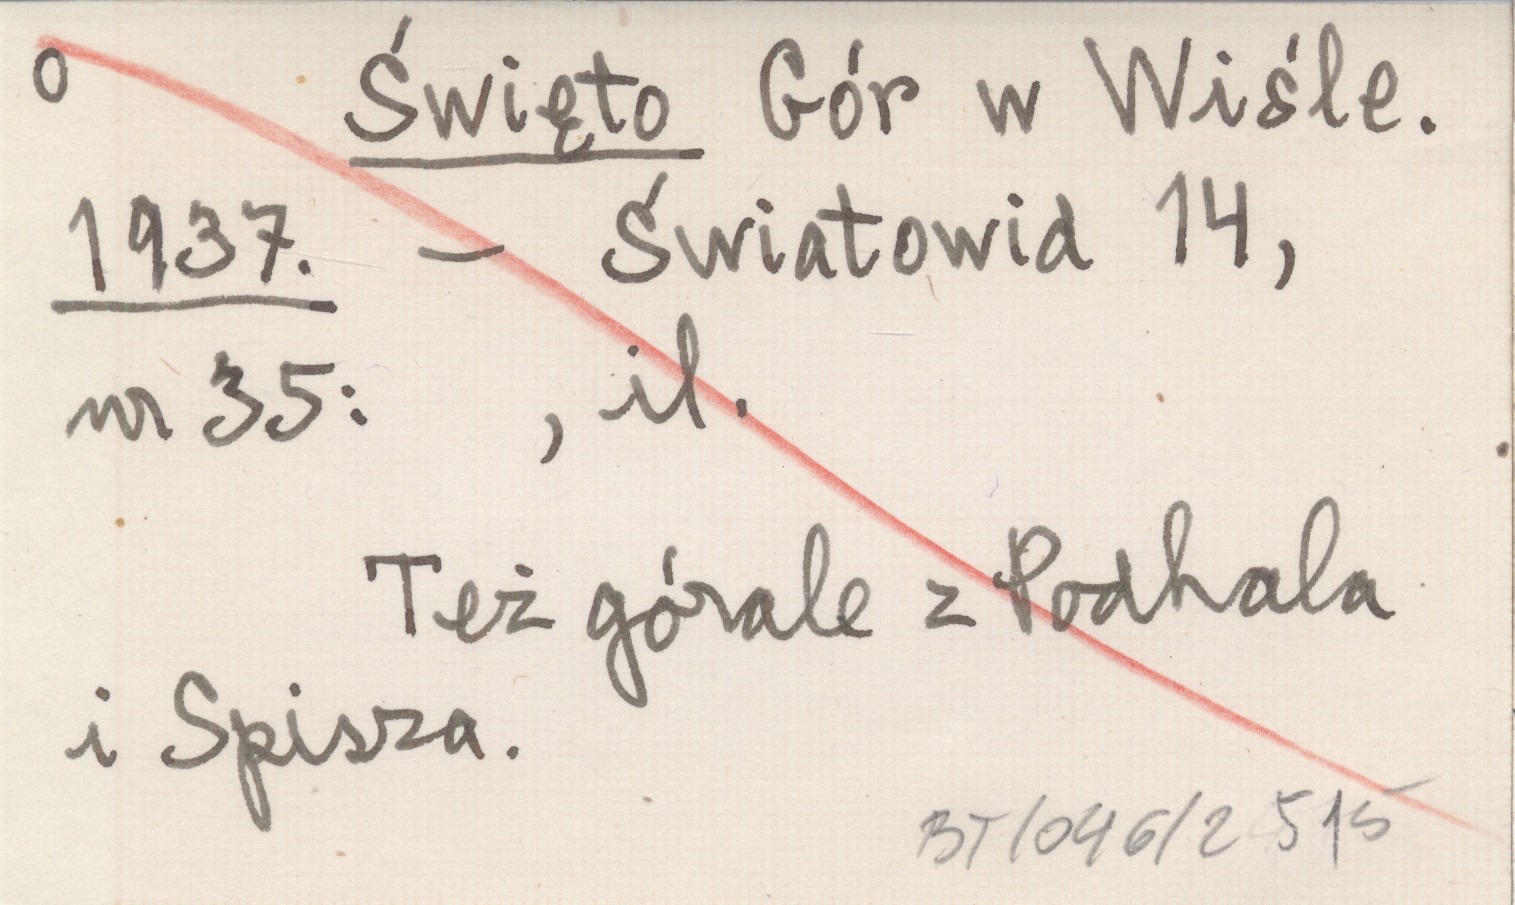 o Święto Gór w Wiśle.
1937. – Światowid 14,
nr 35: , il.
Też górale z Podhala
i Spisza.
BT/046/2515